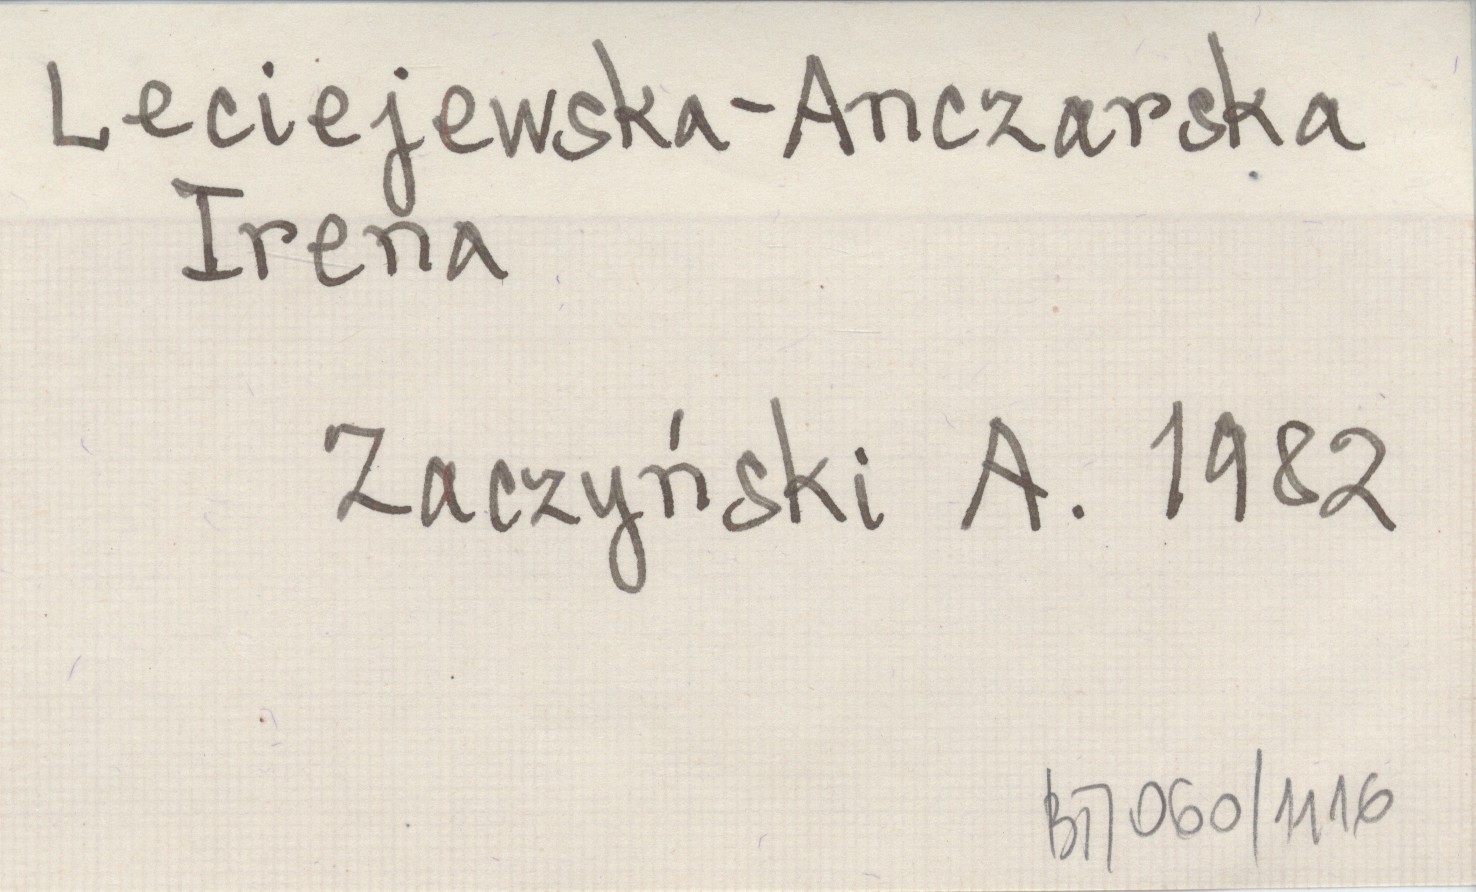 Leciejewska-Anczarska
Irena
Zaczyński A. 1982
060/1116